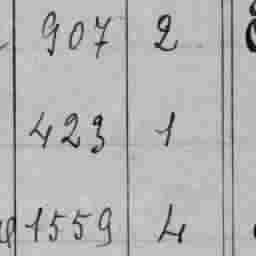 907 2
423 1
1559 4